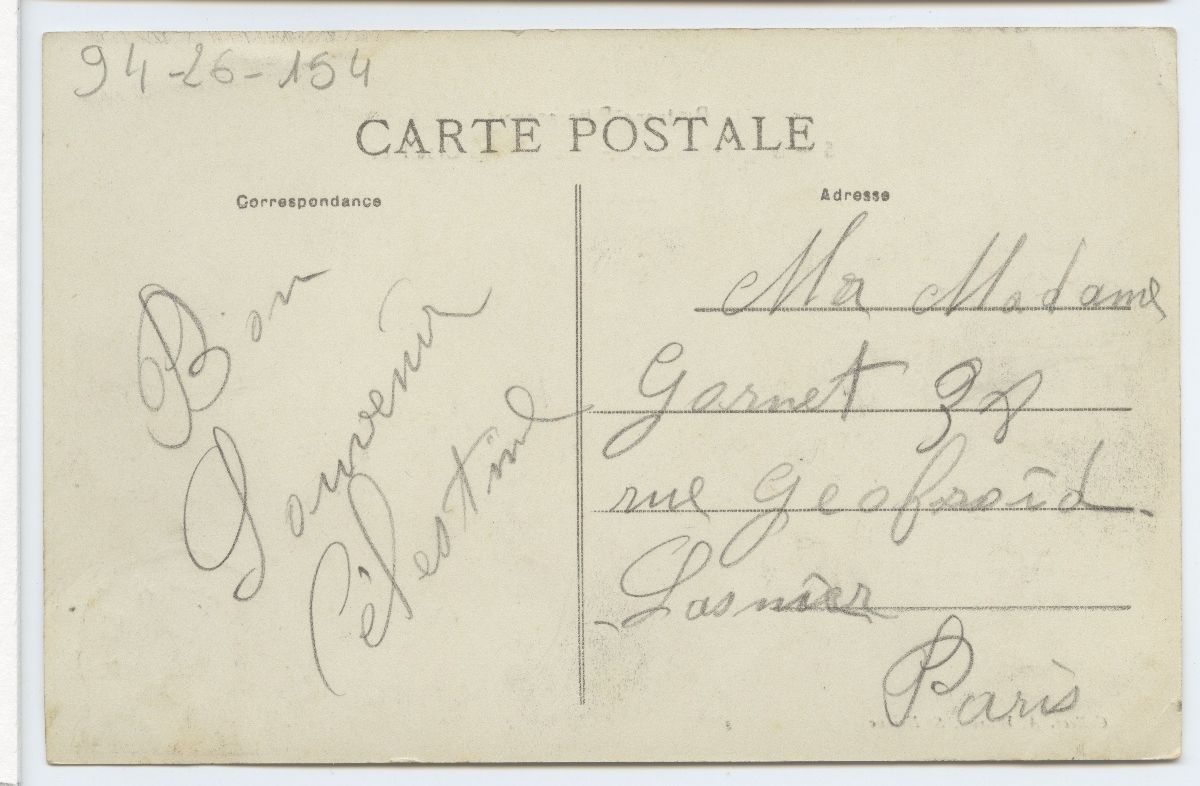 94-26-154
CARTE POSTALE
Correspondance
Bon
Souvenir
Célestine
Adresse
Mr Madame
Garnet 38
rue Geofroid
Lasnier
Paris